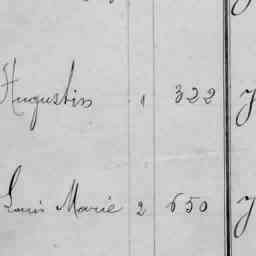 Augustin 1 322
Louis Marie 2 650